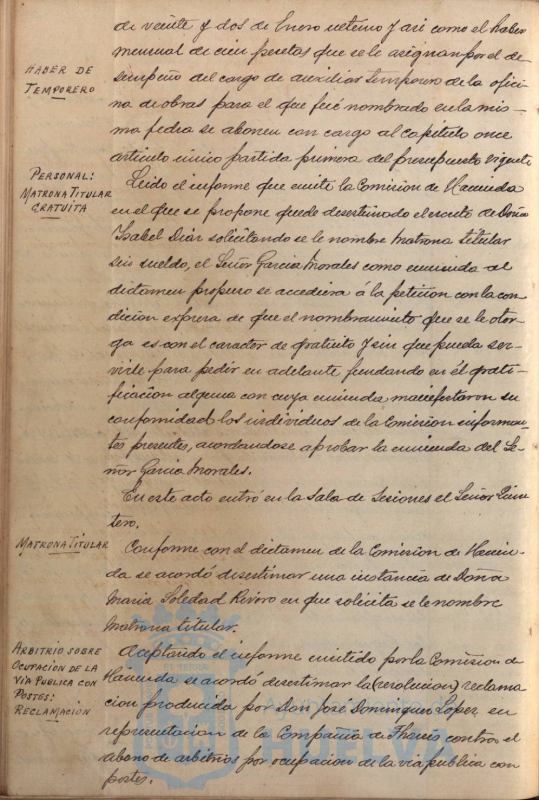 de veinte y dos de Enero ultimo y asi como el haber
mensual de cien pesetas que se le asignan por el de
HABER DE
TEMPORERO
sempeño del cargo de auxiliar temporero de la ofici
na de obras para el que fué nombrado en la mis-
ma fecha se abonen con cargo al capitulo once
articulo único partida primera del presupuesto vigente
PERSONAL:
MATRONA TITULAR
GRATUITA
Leido el informe que emite la Comision de Hacienda
en el que se propone quede desestimado el escrito de Doña
Isabel Diaz solicitando se le nombre Matrona titular
sin sueldo, el Señor Garcia Morales como enmienda al
dictamen propuso se accediera á la peticion con la con
dicion expresa de que el nombramiento que se le otor-
ga es con el caracter de gratuito y sin que pueda ser-
virle para pedir en adelante fundando en él grati-
ficacion alguna con cuya enmienda manifestaron su
conformidad los individuos de la Comision informan-
tes presentes, acordandose aprobar la enmienda del Se-
ñor Garcia Morales.
En este acto entró en la Sala de Sesiones el Señor Quin
tero.
MATRONA TITULAR
Conforme con el dictamen de la Comision de Hacien-
da se acordó desestimar una instancia de Doña
Maria Soledad Rivero en que solicita se le nombre
Matrona titular.
ARBITRIO SOBRE
OCUPACIÓN DE LA
VIA PUBLICA CON
POSTES:
RECLAMACIÓN
Aceptando el informe emitido por la Comision de
Hacienda se acordó desestimar la (resolucion) reclama
cion producida por Don José Dominguez Lopez en
representacion de la Compañia de Tharsis contra el
abono de arbitrios por ocupacion de la via publica con
postes.
HUELVA